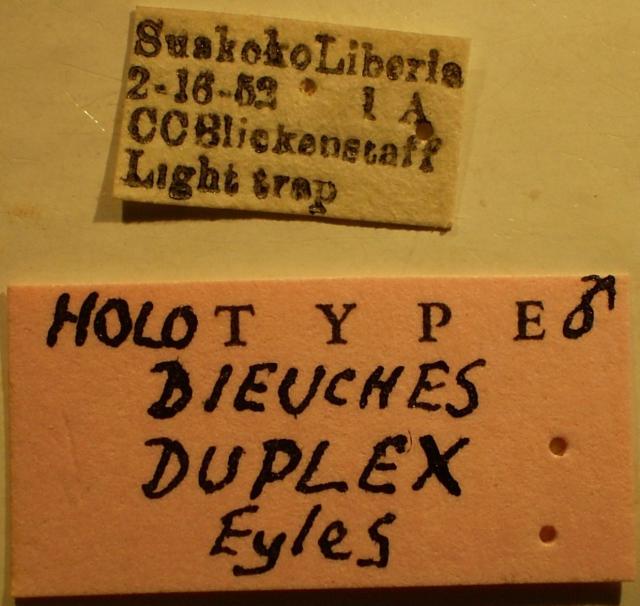 Suakoko Liberia
2-16-52 1 A
CC Blickenstaff
Light trap
HOLOTYPE ♂
DIEUCHES
DUPLEX
Eyles